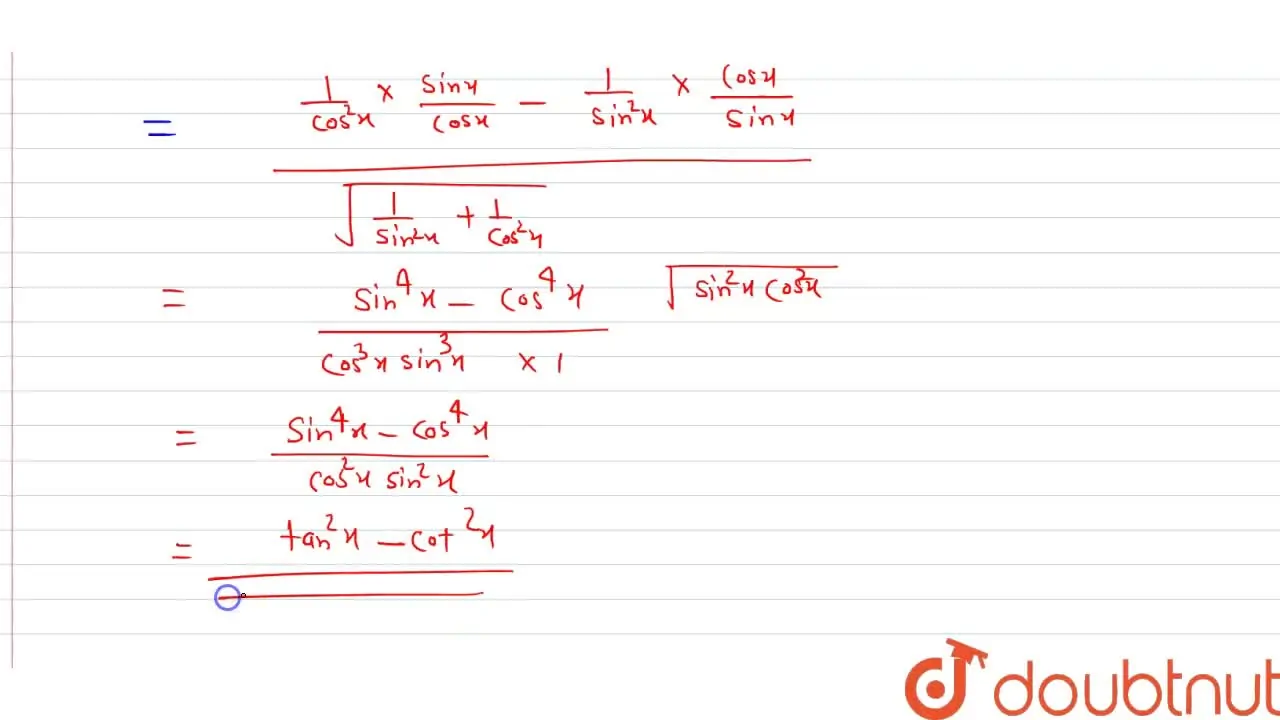 = 1/cos²x × sinx/cosx − 1/sin²x × cosx/sinx
√(1/sin²x + 1/cos²x)
= sin⁴x − cos⁴x √(sin²x cos²x)
cos³x sin³x × 1
= sin⁴x − cos⁴x
cos²x sin²x
= tan²x − cot²x
doubtnut